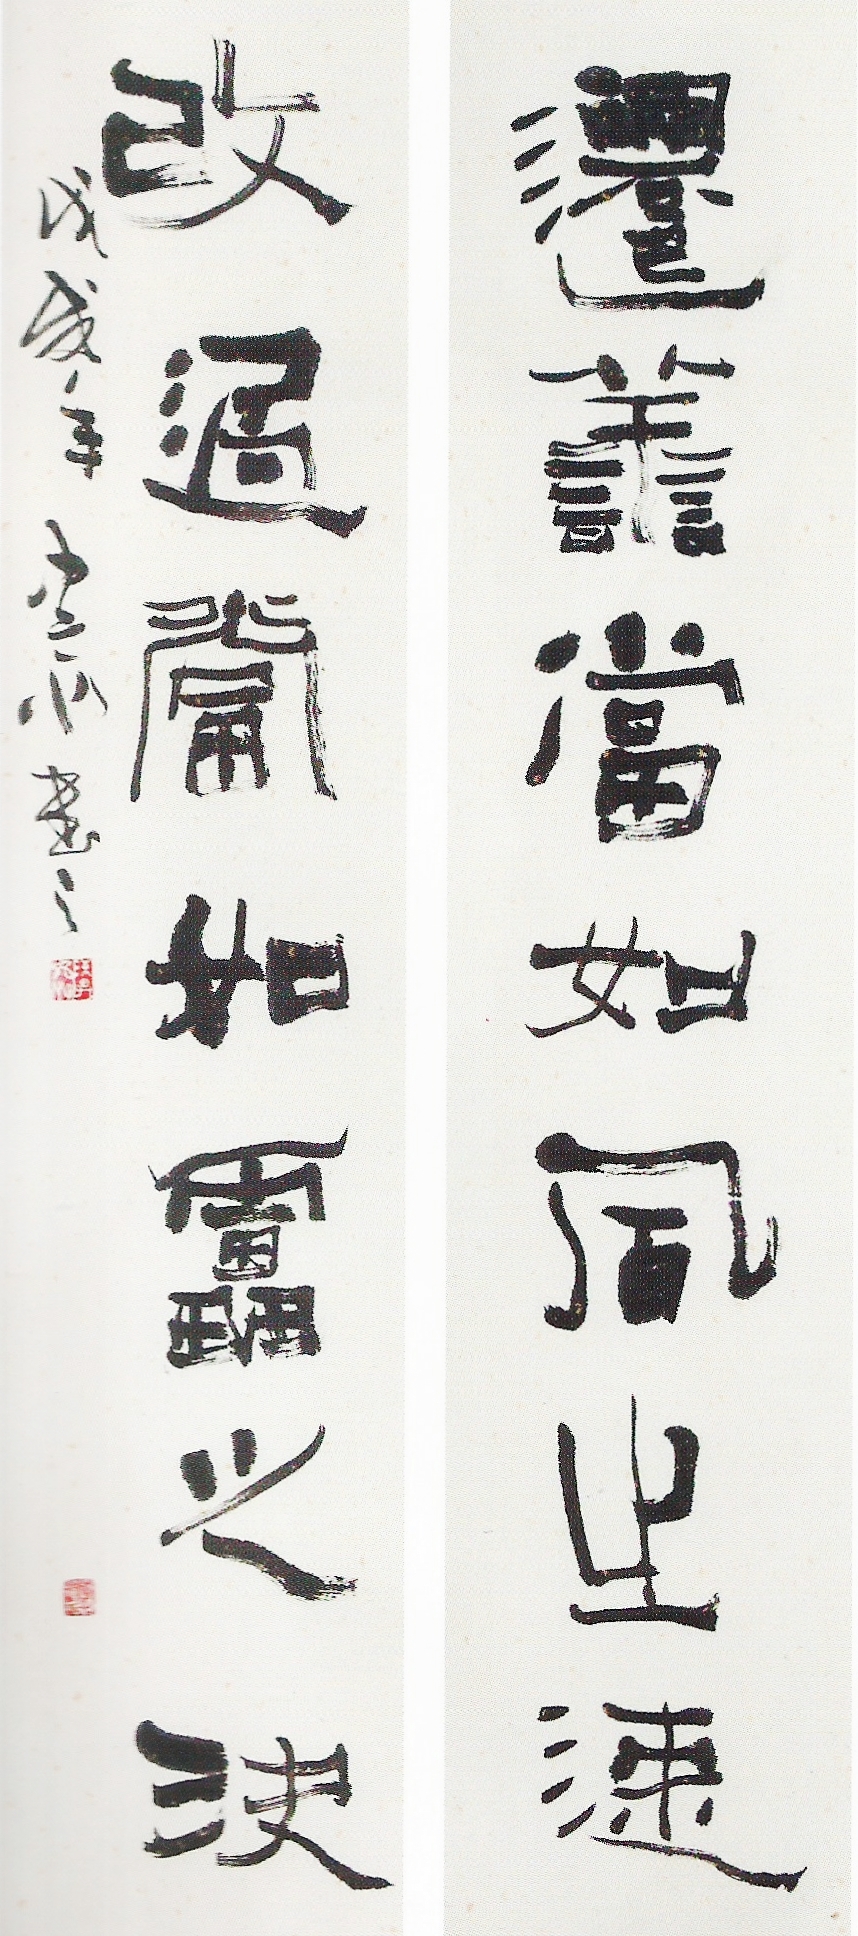 遷譱當如風之速
改過當如靁之決
戊戌年 書之